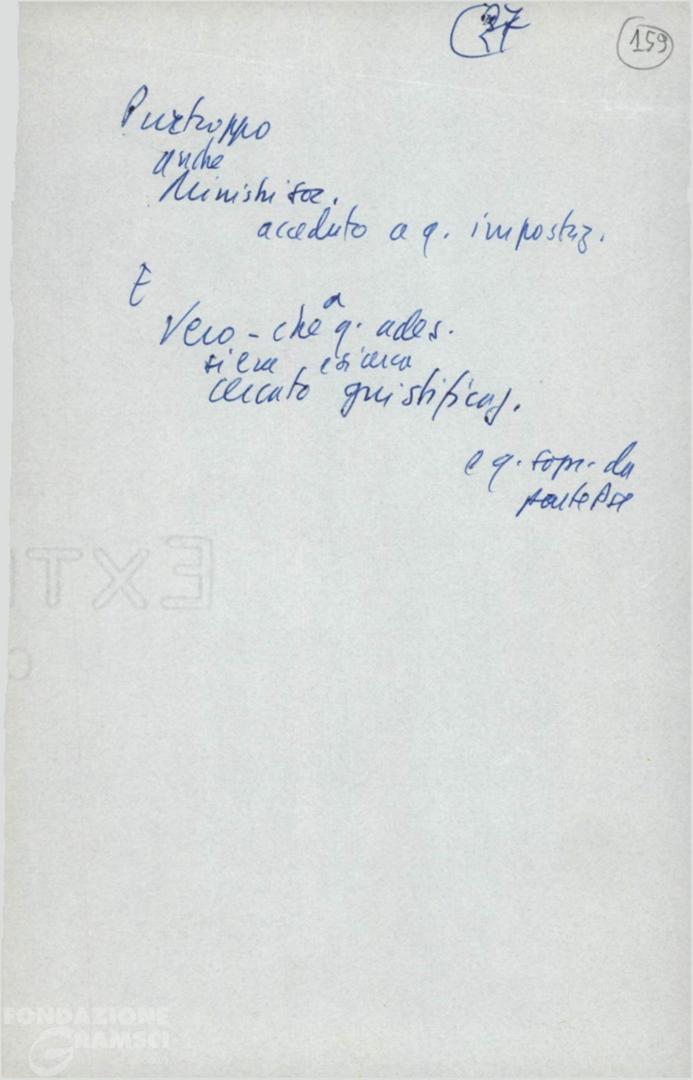 37
159
Purtroppo
anche
Ministri soc.
acceduto a q. impostaz.
E
Vero - che a q. ades.
si era e si cerca
cercato giustificaz.
e q. sopr. da
parte Psi
EXT
FONDAZIONE
GRAMSCI